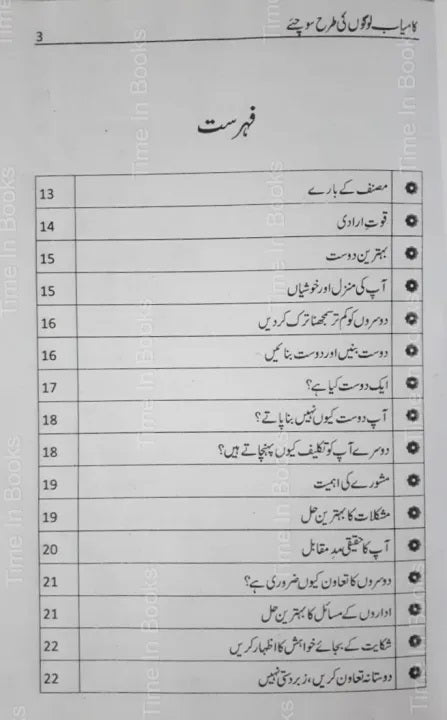 کامیاب لوگوں کی طرح سوچئے 3
فہرست
مصنف کے بارے 13
قوتِ ارادی 14
بہترین دوست 15
آپ کی منزل اور خوشیاں 15
دوسروں کو کم تر سمجھنا ترک کر دیں 16
دوست بنیں اور دوست بنائیں 16
ایک دوست کیا ہے؟ 17
آپ دوست کیوں نہیں بنا پاتے؟ 18
دوسرے آپ کو تکلیف کیوں پہنچاتے ہیں؟ 18
مشورے کی اہمیت 19
مشکلات کا بہترین حل 19
آپ کا حقیقی مدِ مقابل 20
دوسروں کا تعاون کیوں ضروری ہے؟ 21
اداروں کے مسائل کا بہترین حل 21
شکایت کے بجائے خواہش کا اظہار کریں 22
دوستانہ تعاون کریں، زبردستی نہیں 22
Time In Books
Time In Books
Time In Books
Time In Books
Time In Books
Time In Books
Time In Books